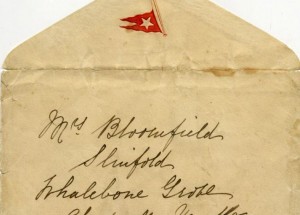 Mrs Bloomfield
Slinfold
Whalebone Grove